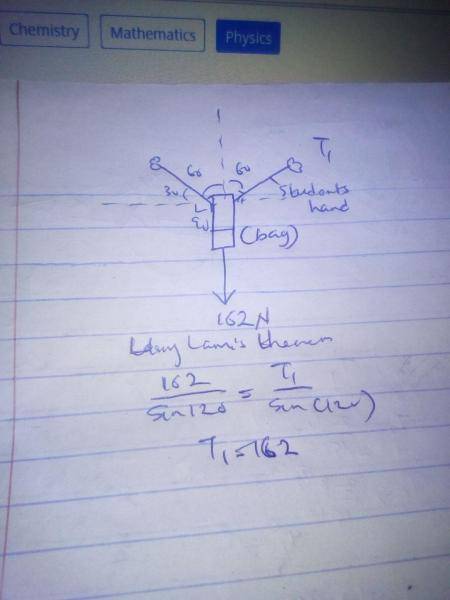 Chemistry Mathematics Physics
T₁
60 60
30
Students
hand
90
(bag)
162N
Lami's theorem
162/Sin120 = T₁/Sin(120)
T₁=162